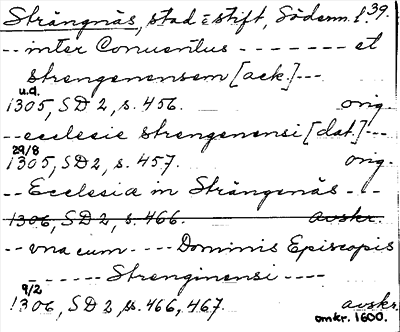 Strängnäs, stad o stift, Söderm. l. 39.
-- inter Conuentus ------- et
strengenensem [ack.]---
u.d.
1305, SD 2, s. 456. orig.
-- ecclesie strengenensi [dat.]---
29/8
1305, SD 2, s. 457. orig.
-- Ecclesia in Strängenäs --
1306, SD 2, s. 466. avskr.
-- vna cum ---- Dominis Episcopis
------ Strenginensi ----
9/2
1306, SD 2, s. 466, 467. avskr.
omkr. 1600.